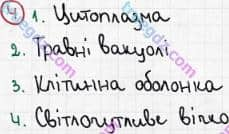 4 1. Цитоплазма
2. Травні вакуолі
3. Клітинна оболонка
4. Світлочутливе вічко